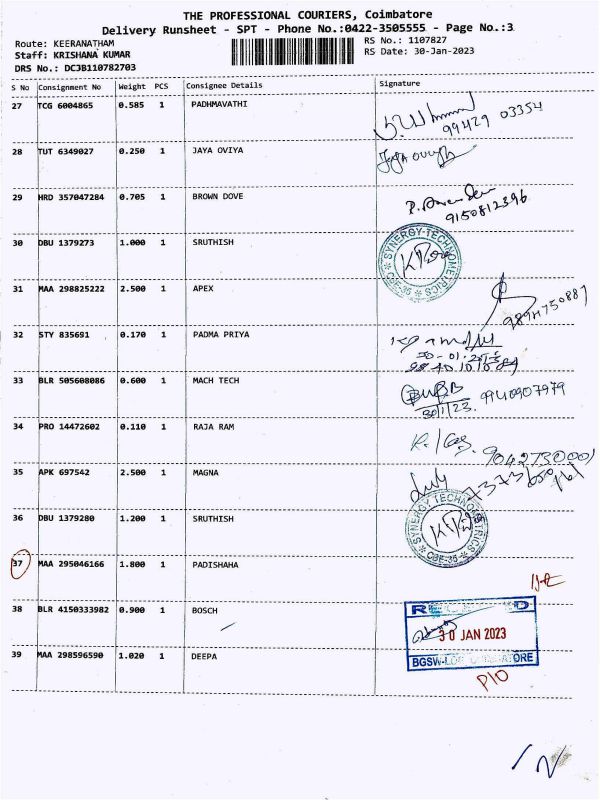 THE PROFESSIONAL COURIERS, Coimbatore
Delivery Runsheet - SPT - Phone No.:0422-3505555 - Page No.:3
Route: KEERANATHAM
RS No.: 1107827
Staff: KRISHANA KUMAR
RS Date: 30-Jan-2023
DRS No.: DCJB110782703
S No Consignment No Weight PCS Consignee Details Signature
27 TCG 6004865 0.585 1 PADHMAVATHI
99429 03354
28 TUT 6349027 0.250 1 JAYA OVIYA
29 HRD 357047284 0.705 1 BROWN DOVE
9150812396
30 DBU 1379273 1.000 1 SRUTHISH
SYNERGY-TECHNOMETRICS
CBE-35
31 MAA 298825222 2.500 1 APEX
9894750887
32 STY 835691 0.170 1 PADMA PRIYA
33 BLR 505608086 0.600 1 MACH TECH
30/1/23. 9940907979
34 PRO 14472602 0.110 1 RAJA RAM
35 APK 697542 2.500 1 MAGNA
36 DBU 1379280 1.200 1 SRUTHISH
SYNERGY TECHNOMETRICS
CBE-35
37 MAA 295046166 1.800 1 PADISHAHA
38 BLR 4150333982 0.900 1 BOSCH
30 JAN 2023
39 MAA 298596590 1.020 1 DEEPA
P10